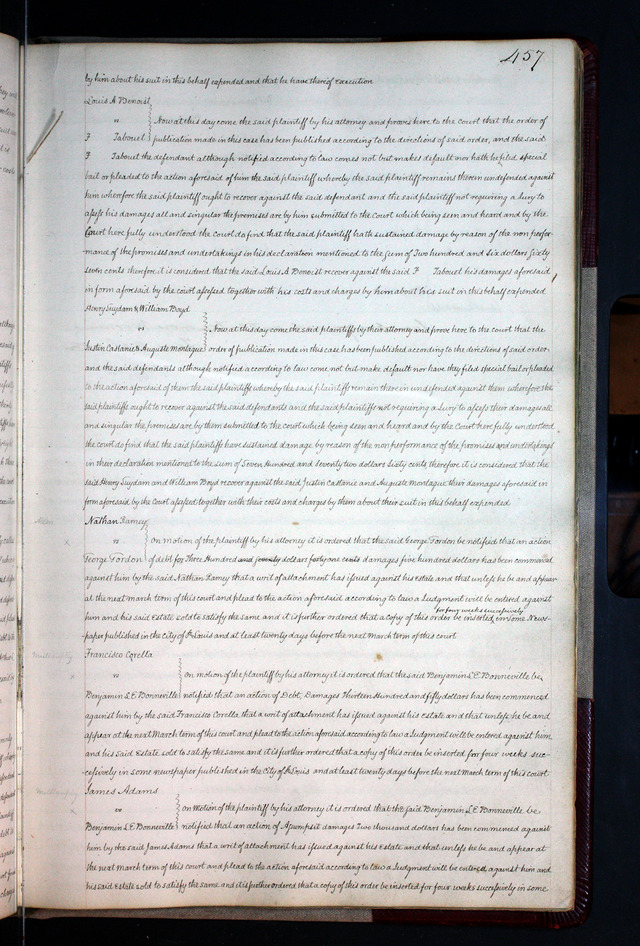 457
by him about his suit in this behalf expended and that he have thereof Execution
Louis A Benoist
vs
Now at this day come the said plaintiff by his attorney and proves here to the Court that the order of
F Tabouel publication made in this case has been published according to the directions of said order, and the said
F Tabouel the defendant although notified according to law comes not but makes default nor hath he filed special
bail or pleaded to the action aforesaid of him the said plaintiff whereby the said plaintiff remains therein undefended against
him wherefore the said plaintiff ought to recover against the said defendant and the said plaintiff not requiring a Jury to
assess his damages all and singular the premises are by him submitted to the Court which being seen and heard and by the
Court here fully understood the Court do find that the said plaintiff hath sustained damage by reason of the non perfor-
mance of the promises and undertakings in his declaration mentioned to the sum of Two hundred and Six dollars Sixty
seven cents therefore it is considered that the said Louis A Benoist recover against the said F Tabouel his damages aforesaid
in form aforesaid by the court assessed together with his costs and charges by him about his suit in this behalf expended
Henry Suydam & William Boyd
vs
Now at this day come the said plaintiffs by their attorney and prove here to the court that the
Justin Castanie & Auguste Montague order of publication made in this case has been published according to the directions of said order
and the said defendants although notified according to law come not but make default nor have they filed special bail or pleaded
to the action aforesaid of them the said plaintiffs whereby the said plaintiffs remain there in undefended against them wherefore the
said plaintiffs ought to recover against the said defendants and the said plaintiffs not requiring a Jury to assess their damages all
and singular the premises are by them submitted to the court which being seen and heard and by the Court here fully understood
the court do find that the said plaintiffs have sustained damage by reason of the nonperformance of the promises and undertakings
in their declaration mentioned to the sum of Seven Hundred and Seventy two dollars Sixty cents therefore it is considered that the
said Henry Suydam and William Boyd recover against the said Justin Castanie and Auguste Montague their damages aforesaid in
form aforesaid by the Court assessed together with their costs and charges by them about their suit in this behalf expended
Nathan Ramey
vs
on motion of the plaintiff by his attorney it is ordered that the said George Tordon be notified that an action
George Tordon of debt for Three Hundred and seventy dollars forty one cents damages five hundred dollars has been commenced
against him by the said Nathan Ramey that a writ of attachment has issued against his Estate and that unless he be and appear
at the next march term of this court and plead to the action aforesaid according to law a Judgment will be entered against
for four weeks successively
him and his said Estate sold to satisfy the same and it is further ordered that a copy of this order be inserted in some News-
paper published in the City of St Louis and at least twenty days before the next March term of this court
Francisco Corella
vs
on motion of the plaintiff by his attorney it is ordered that the said Benjamin L E Bonneville be
Benjamin L E Bonneville notified that an action of Debt, Damages Thirteen Hundred and fifty dollars has been commenced
against him by the said Francisco Corella that a writ of attachment has issued against his Estate and that unless he be and
appear at the next March term of this court and plead to the action aforesaid according to law a Judgment will be entered against him
and his said Estate sold to satisfy the same and it is further ordered that a copy of this order be inserted for four weeks suc-
cessively in some newspaper published in the City of St Louis and at least twenty days before the next March term of this court
James Adams
vs
on motion of the plaintiff by his attorney it is ordered that the said Benjamin L E Bonneville be
Benjamin L E Bonneville notified that an action of Assumpsit damages Two thousand dollars has been commenced against
him by the said James Adams that a writ of attachment has issued against his Estate and that unless he be and appear at
the next March term of this court and plead to the action aforesaid according to law a Judgment will be entered against him and
his said Estate sold to satisfy the same and it is further ordered that a copy of this order be inserted for four weeks successively in some